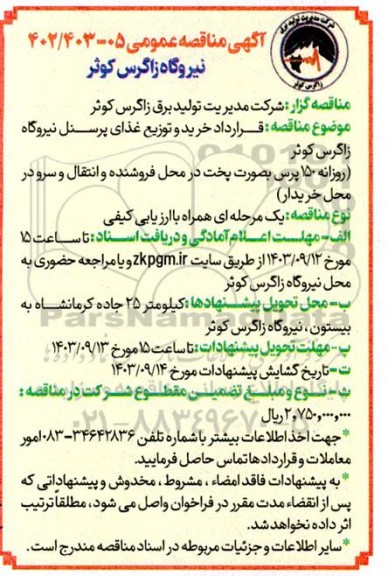 شرکت مدیریت تولید برق
زاگرس کوثر
آگهی مناقصه عمومی ۰۵-۴۰۲/۴۰۳
نیروگاه زاگرس کوثر
مناقصه گزار: شرکت مدیریت تولید برق زاگرس کوثر
موضوع مناقصه: قرارداد خرید و توزیع غذای پرسنل نیروگاه
زاگرس کوثر
(روزانه ۱۵۰ پرس بصورت پخت در محل فروشنده و انتقال و سرو در
محل خریدار)
نوع مناقصه: یک مرحله ای همراه با ارزیابی کیفی
الف- مهلت اعلام آمادگی و دریافت اسناد: تا ساعت ۱۵
مورخ ۱۴۰۳/۰۹/۱۲ از طریق سایت zkpgm.ir و یا مراجعه حضوری به
محل نیروگاه زاگرس کوثر
ب- محل تحویل پیشنهادها: کیلومتر ۲۵ جاده کرمانشاه به
بیستون، نیروگاه زاگرس کوثر
پ- مهلت تحویل پیشنهادات: تا ساعت ۱۵ مورخ ۱۴۰۳/۰۹/۱۳
ت- تاریخ گشایش پیشنهادات مورخ ۱۴۰۳/۰۹/۱۴
ث- نوع و مبلغ تضمین مقطوع شرکت در مناقصه:
۲,۷۵۰,۰۰۰,۰۰۰ ریال
*جهت اخذ اطلاعات بیشتر با شماره تلفن ۳۴۶۴۲۸۳۶-۰۸۳ امور
معاملات و قراردادها تماس حاصل فرمایید.
*به پیشنهادات فاقد امضاء، مشروط، مخدوش و پیشنهاداتی که
پس از انقضاء مدت مقرر در فراخوان واصل می شود، مطلقاً ترتیب
اثر داده نخواهد شد.
*سایر اطلاعات و جزئیات مربوطه در اسناد مناقصه مندرج است.
ParsNamadData
۰۲۱-۸۸۳۴۹۶۷۰-۵